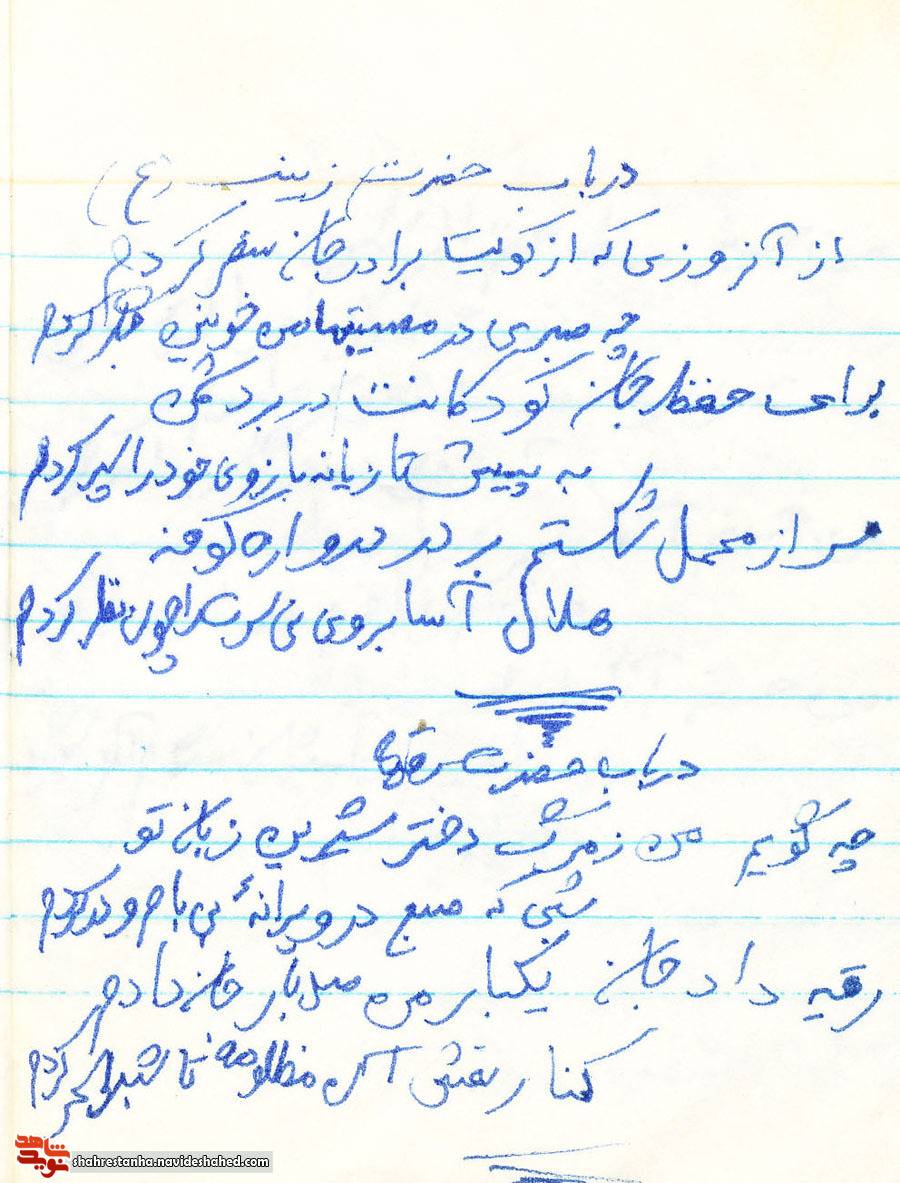 درباب حضرت زینب (ع)
از آنروزی که از کویت برادر جان سفر کردم
چه صبری در مصیبتها من خونین جگر کردم
برای حفظ جان کودکانت در بر دشمن
به پیش تازیانه بازوی خود را سپر کردم
سر از محمل شکستم بر در دروازه کوفه
هلال آسا بروی نی سرت را چون نظر کردم
درباب حضرت رقیه
چه گویم من ز مرگ دختر شیرین زبان تو
شبی که صبح در ویرانهٔ بی بام و در کردم
رقیه داد جان یکبار من صد بار جان دادم
کنار نعش آن مظلومه تا شب را سحر کردم
شاهد
نوید
shahrestanha.navideshahed.com